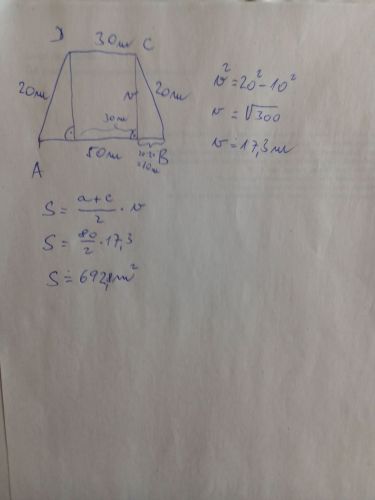 D 30m C
20m v 20m
30m
50m
A B
v² = 20² - 10²
v = √300
v ≐ 17,3m
S = a+c/2 · v
S = 80/2 · 17,3
S ≐ 692,8m²